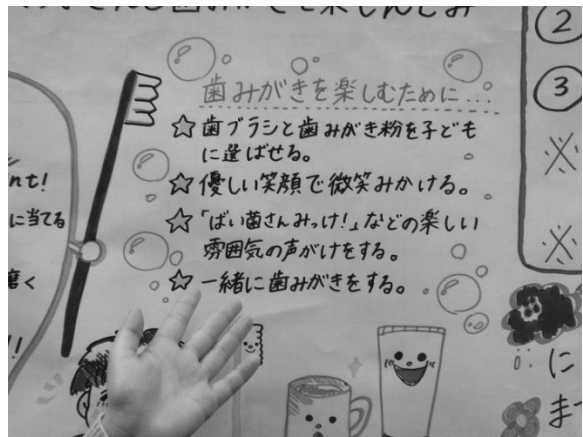 歯みがきを楽しむために...
☆歯ブラシと歯みがき粉を子ども
に選ばせる。
☆優しい笑顔で微笑みかける。
☆「ばい菌さんみっけ!」などの楽しい
雰囲気の声がけをする。
☆一緒に歯みがきをする。
nt!
に当てる
磨く
②
③
※
※
に
ま